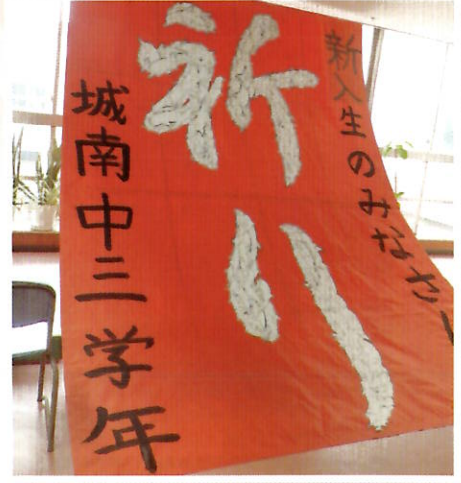 新入生のみなさ
祈り
城南中三学年